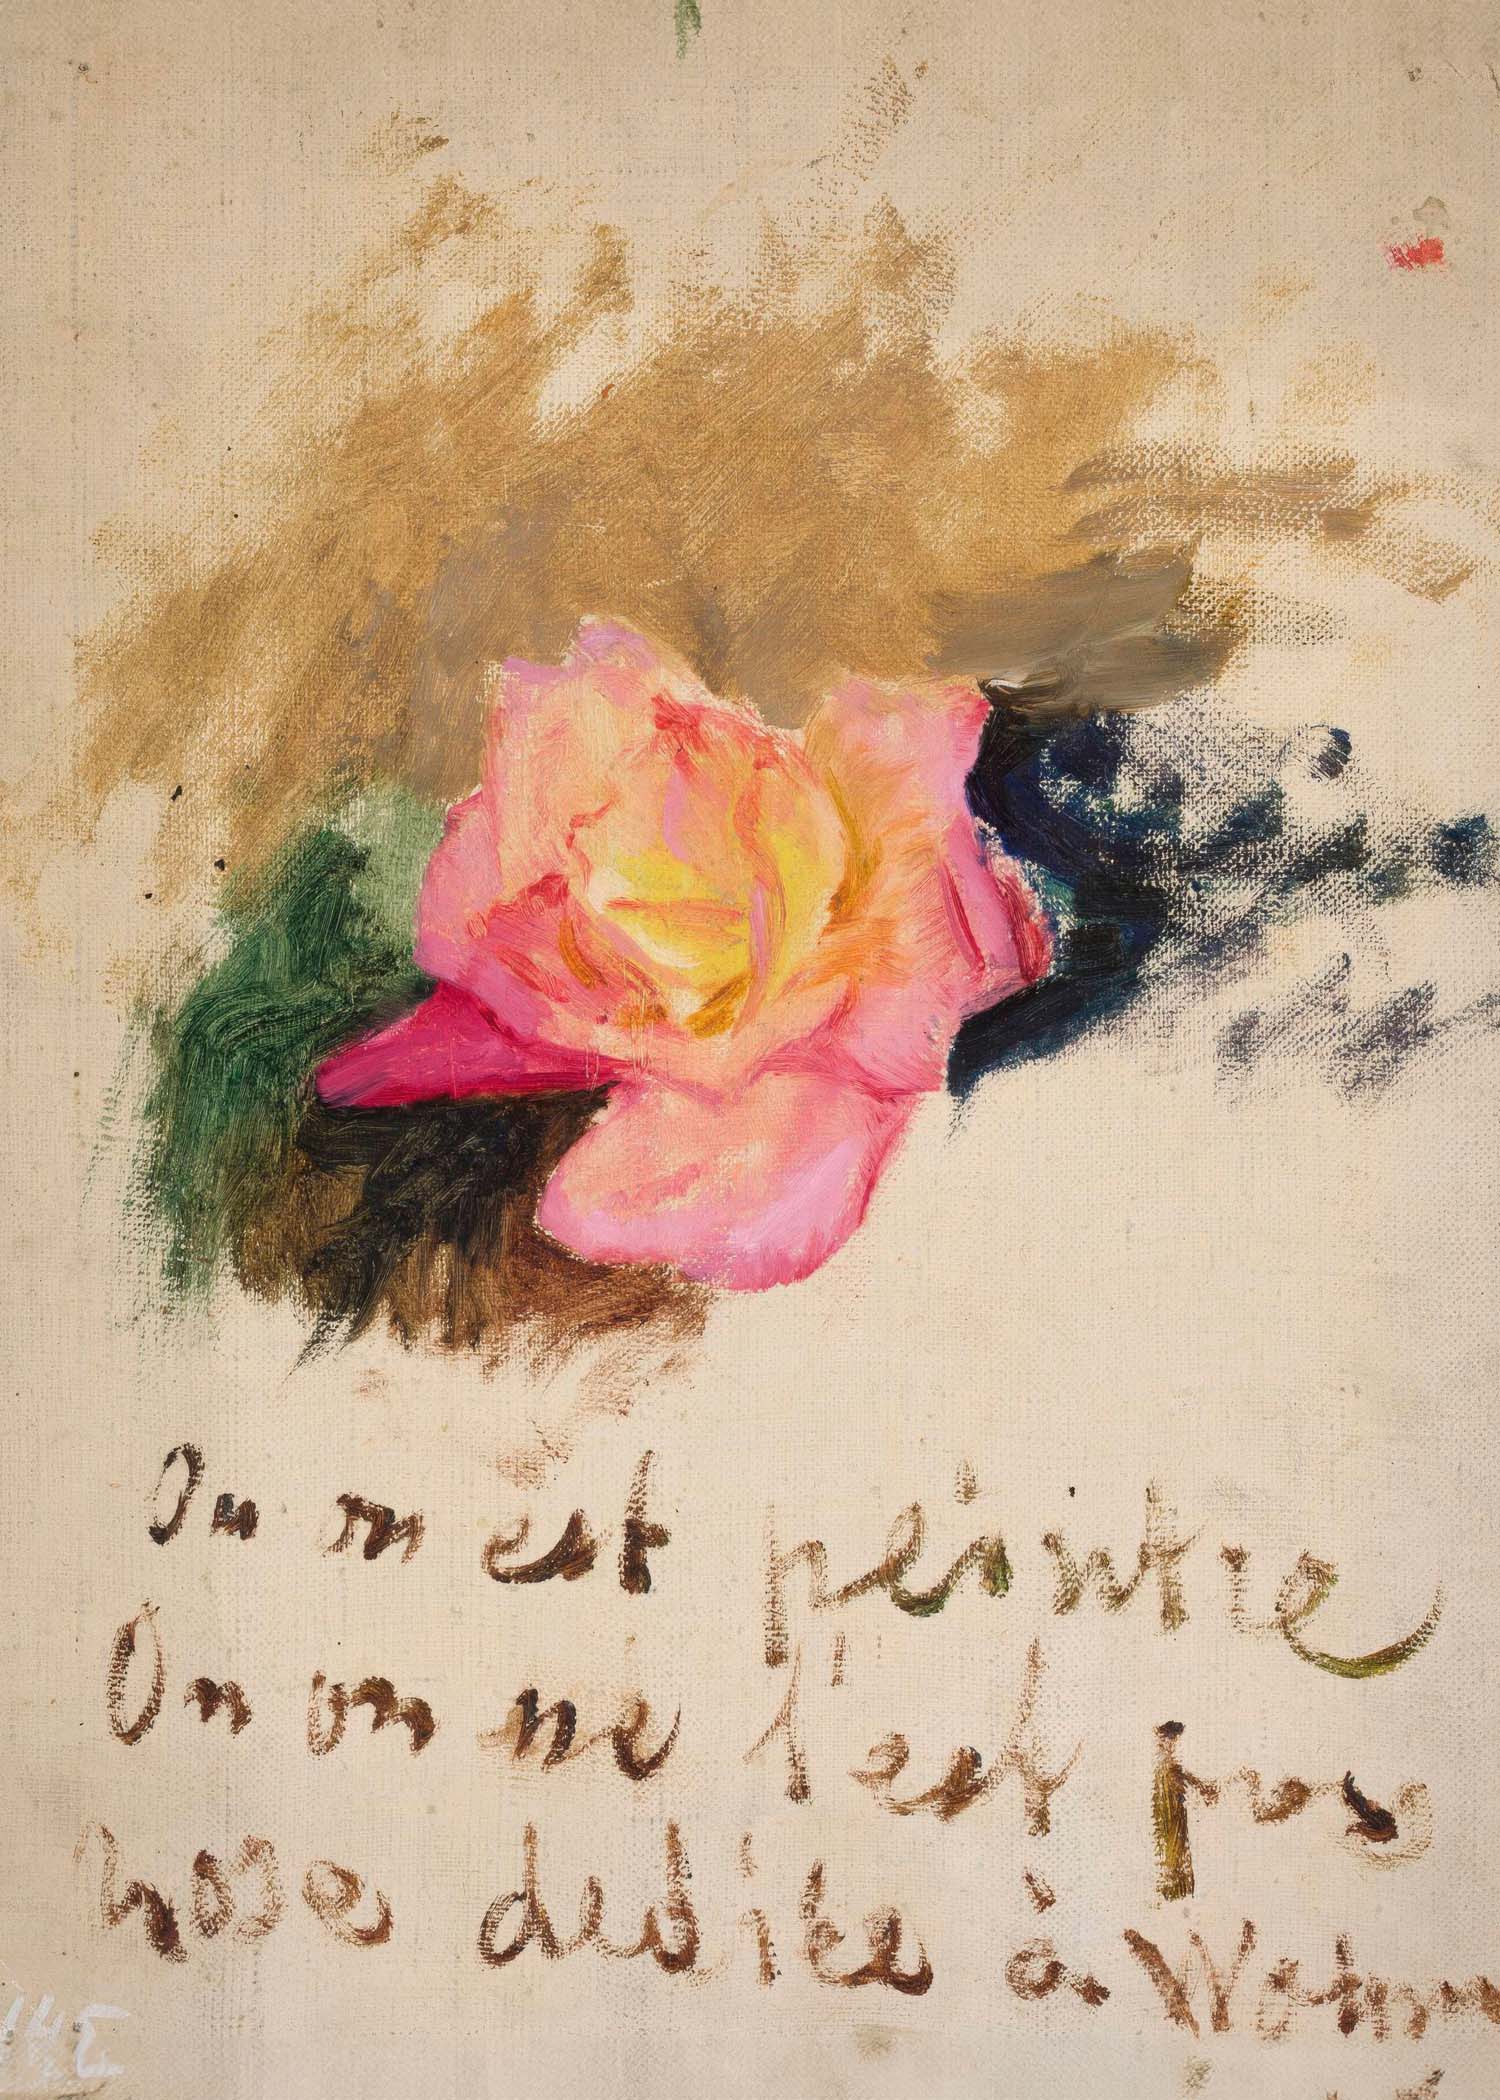 On en est peintre
On on ne l'est pas
Rose dediée à
145